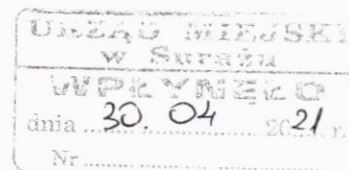 URZĄD MIEJSKI
w Surażu
WPŁYNĘŁO
dnia ... 30. 04 ... 2021 r.
Nr ...